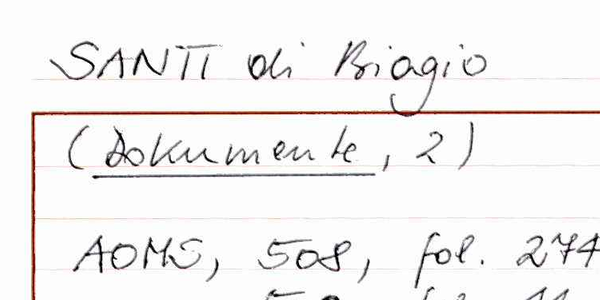 SANTI di Biagio
(Dokumente, 2)
AOMS, 508, fol. 274